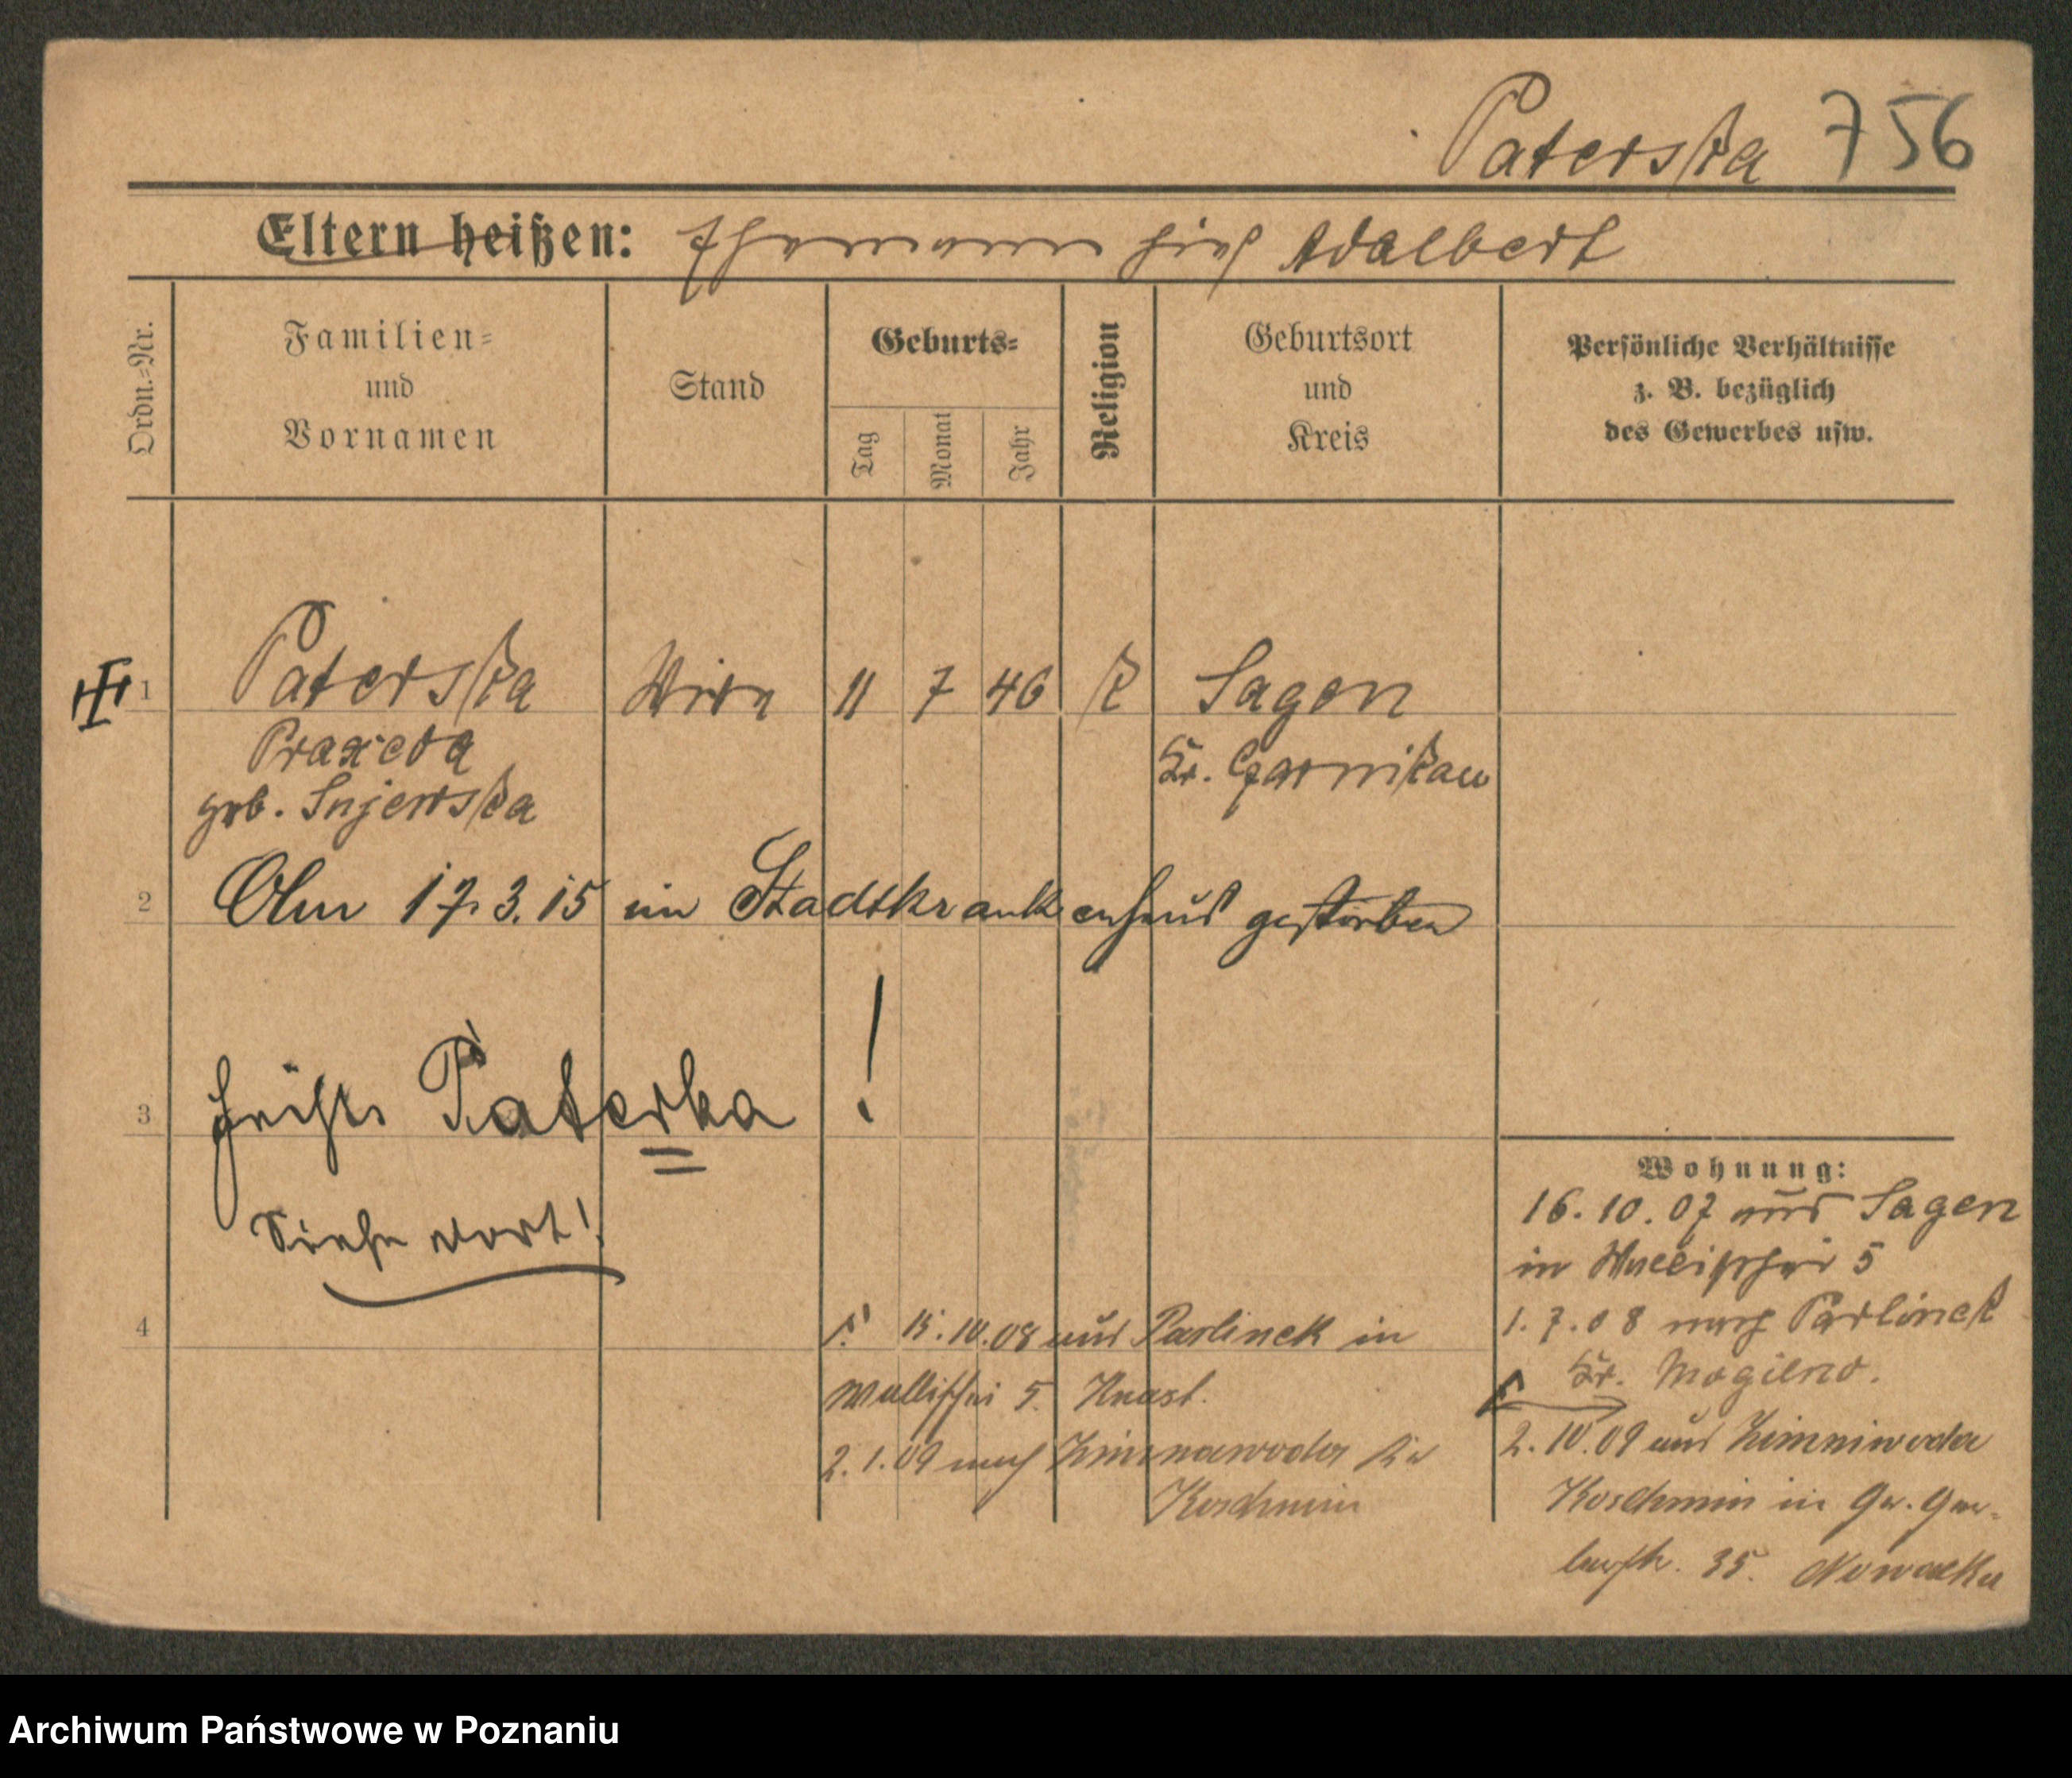 Paterska 756
Eltern heißen: Ehemann hieß Adalbert
Ordn.-Nr.
Familien-
und
Vornamen
Stand
Geburts-
Tag
Monat
Jahr
Religion
Geburtsort
und
Kreis
Persönliche Verhältnisse
z. B. bezüglich
des Gewerbes usw.
1 Paterska Witw 11 7 46 K Sagen
Praxeda Kr. Czarnikau
geb.
2 Am 17.3.15 im Stadtkrankenhaus gestorben
3 heißt Paterka !
Siehe dort!
4
15.10.08 aus Parlinek in
Wallischei 5
2.1.09 nach Zimnawoda Kr
Koschmin
Wohnung:
16.10.07 aus Sagen
in Wallischei 5
1.7.08 nach Parlinek
Kr. Mogilno.
2.10.09 aus Zimniwoda
Koschmin in Gr. Ger-
berstr. 35. Nowacka
Archiwum Państwowe w Poznaniu